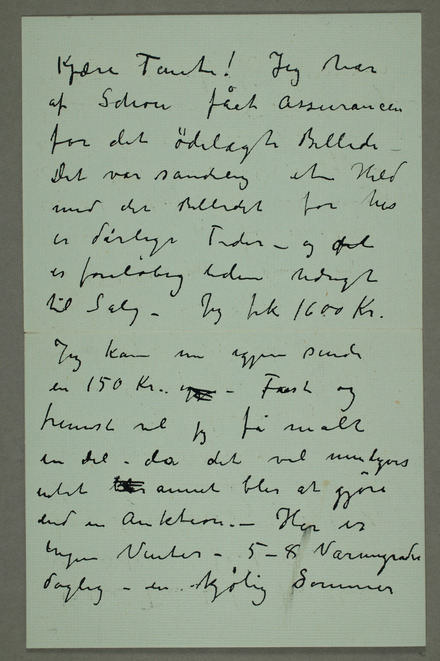 Kjære Tante! Jeg har
af Schou fået Assurancen
for det ödelagte Billede –
Det var sandelig et Held
med det Billedet for her
er dårlige Tider – og det
er foreløbig uden Udsigt
til Salg – Jeg fik 1600 Kr.
Jeg kan nu igjen sende
en 150 Kr. – Først og
fremst vil jeg få malt
en Del – da det vel muligens
intet annet blir at gjöre
end en Auktion. – Her er
ingen Vinter – 5–8 Varmegrader
daglig – en kjölig Sommer